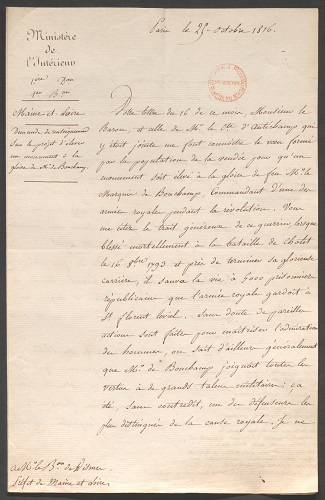 Paris le 25 octobre 1816.
Ministère
de
l'Intérieur
1ère Don
1er Bau
Maine-et-Loire
Demande de renseignemens
sur le projet d'élever
un monument à la
gloire de Mr. de Bonchamp
Votre lettre du 16 de ce mois, Monsieur le
Baron, et celle de Mr. le Cte. d'Autichamp qui
y était jointe me font connaître le vœu formé
par la population de la vendée pour qu'un
monument soit élevé à la gloire de feu Mr. le
Marquis de Bonchamp, Commandant d'une des
armées royales pendant la révolution. Vous
me citez le trait généreux de ce guerrier lorsque
blessé mortellement à la bataille de Cholet
le 16 8bre 1793 et près de terminer sa glorieuse
carrière, il sauva la vie à 5000 prisonniers
républicains que l'armée royale gardait à
St florent le vieil. Sans doute de pareilles
actions sont faites pour maîtriser l'admiration
des hommes, on sait d'ailleurs généralement
que Mr. de Bonchamp joignait toutes les
vertus à de grands talens militaires: il a
été, sans contredit, un des défenseurs les
plus distingués de la cause royale. Je ne
à Mr. le Bon de Wismes
Préfet de Maine et Loire